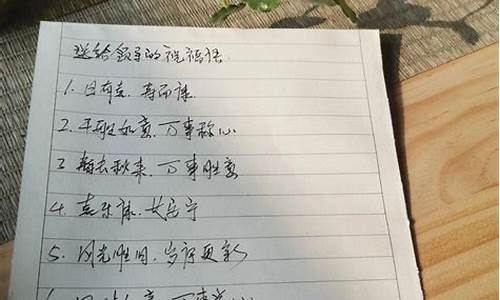 送给领导的祝福语
1. 日有喜.寿而康.
2. 平胜如意.万事称心
3. 暑去秋来.万事胜意
4. 喜乐康.安宁
5. 风光胜旧.岁序更新
万事